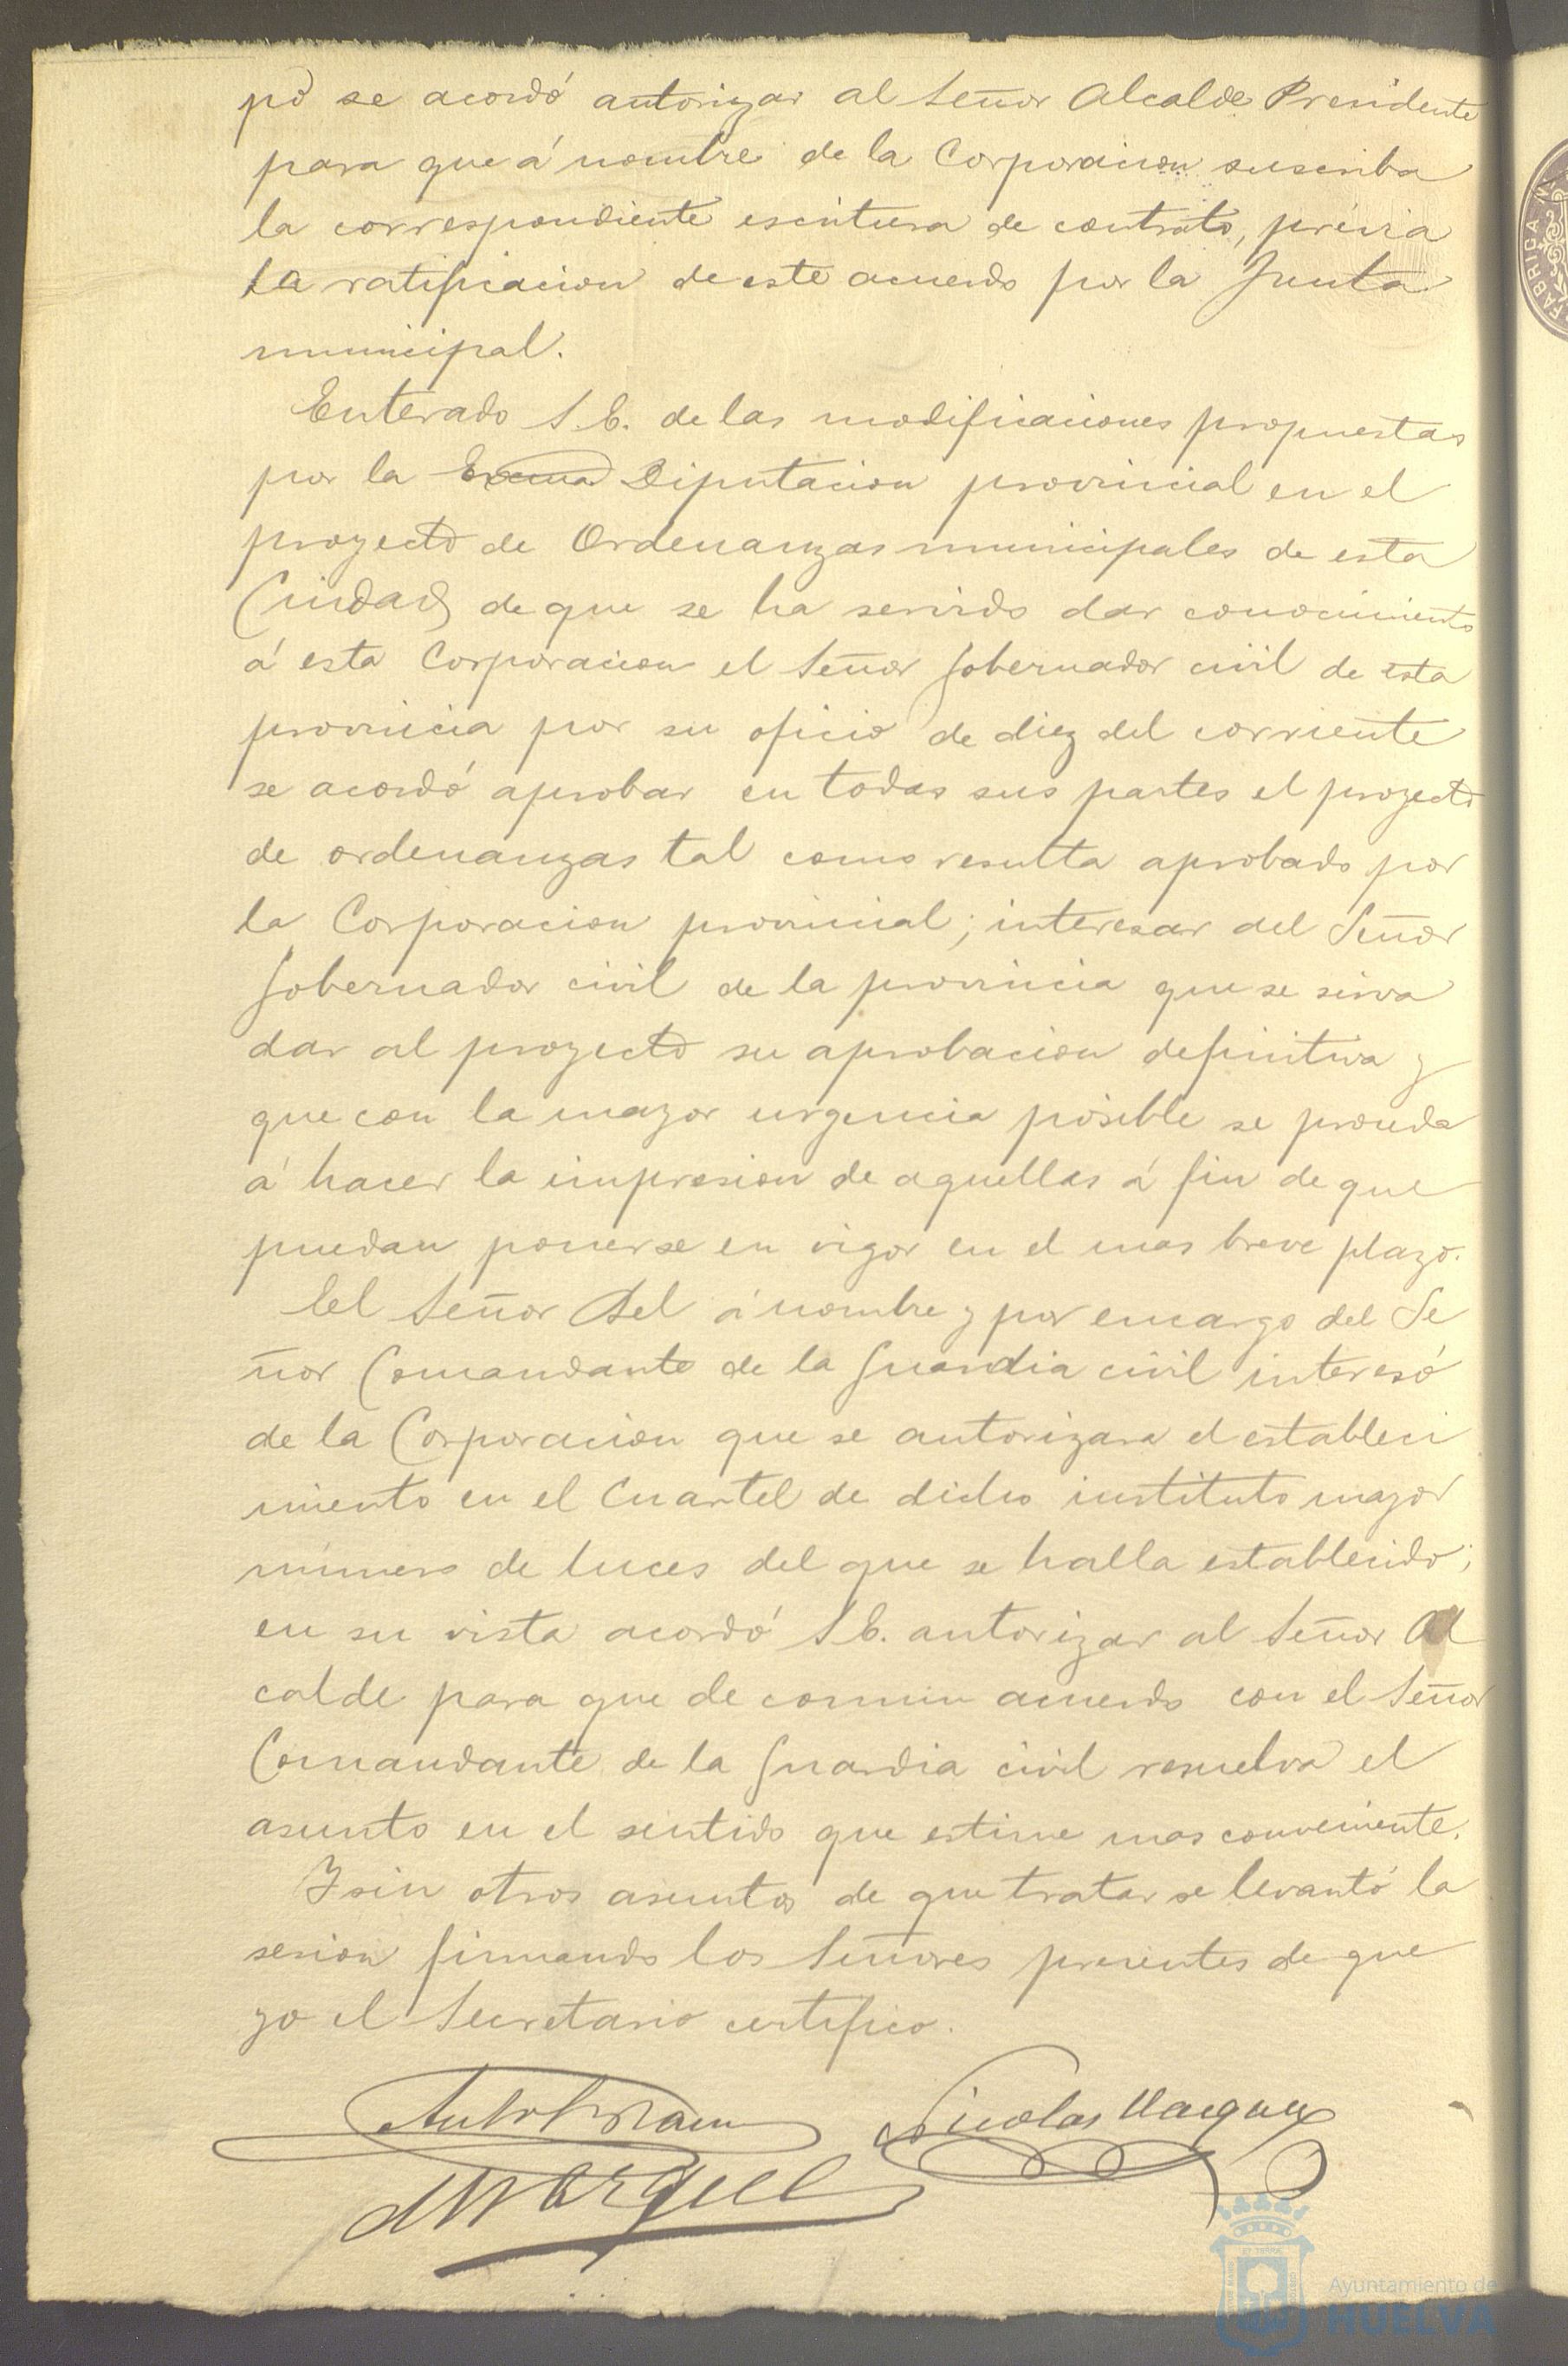 pó se acordó autorizar al Señor Alcalde Presidente
para que á nombre de la Corporacion suscriba
la correspondiente escritura de contrato, prévia
la ratificacion de este acuerdo por la Junta
municipal.
Enterado S. E. de las modificaciones propuestas
por la Excma Diputacion provincial en el
proyecto de Ordenanzas municipales de esta
Ciudad de que se ha servido dar conocimiento
á esta Corporacion el Señor Gobernador civil de esta
provincia por su oficio de diez del corriente
se acordó aprobar en todas sus partes el proyecto
de ordenanzas tal como resulta aprobado por
la Corporacion provincial; interesar del Señor
Gobernador civil de la provincia que se sirva
dar al proyecto su aprobacion definitiva y
que con la mayor urgencia posible se proceda
á hacer la impresion de aquellas á fin de que
puedan ponerse en vigor en el mas breve plazo.
El Señor Bel á nombre y por encargo del Se
ñor Comandante de la Guardia civil interesó
de la Corporacion que se autorizara el estableci
miento en el Cuartel de dicho instituto mayor
número de luces del que se halla establecido;
en su vista acordó S. E. autorizar al Señor Al
calde para que de comun acuerdo con el Señor
Comandante de la Guardia civil resuelva el
asunto en el sentido que estime mas conveniente.
Y sin otros asuntos de que tratar se levantó la
sesion firmando los Señores presentes de que
yo el Secretario certifico.
Nicolas Vazquez
Ayuntamiento de
HUELVA
FABRICA N